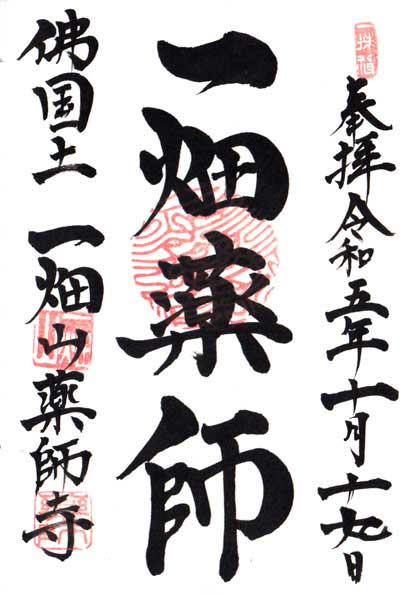 奉拝 令和五年十月十九日
一畑薬師
佛国土 一畑山薬師寺